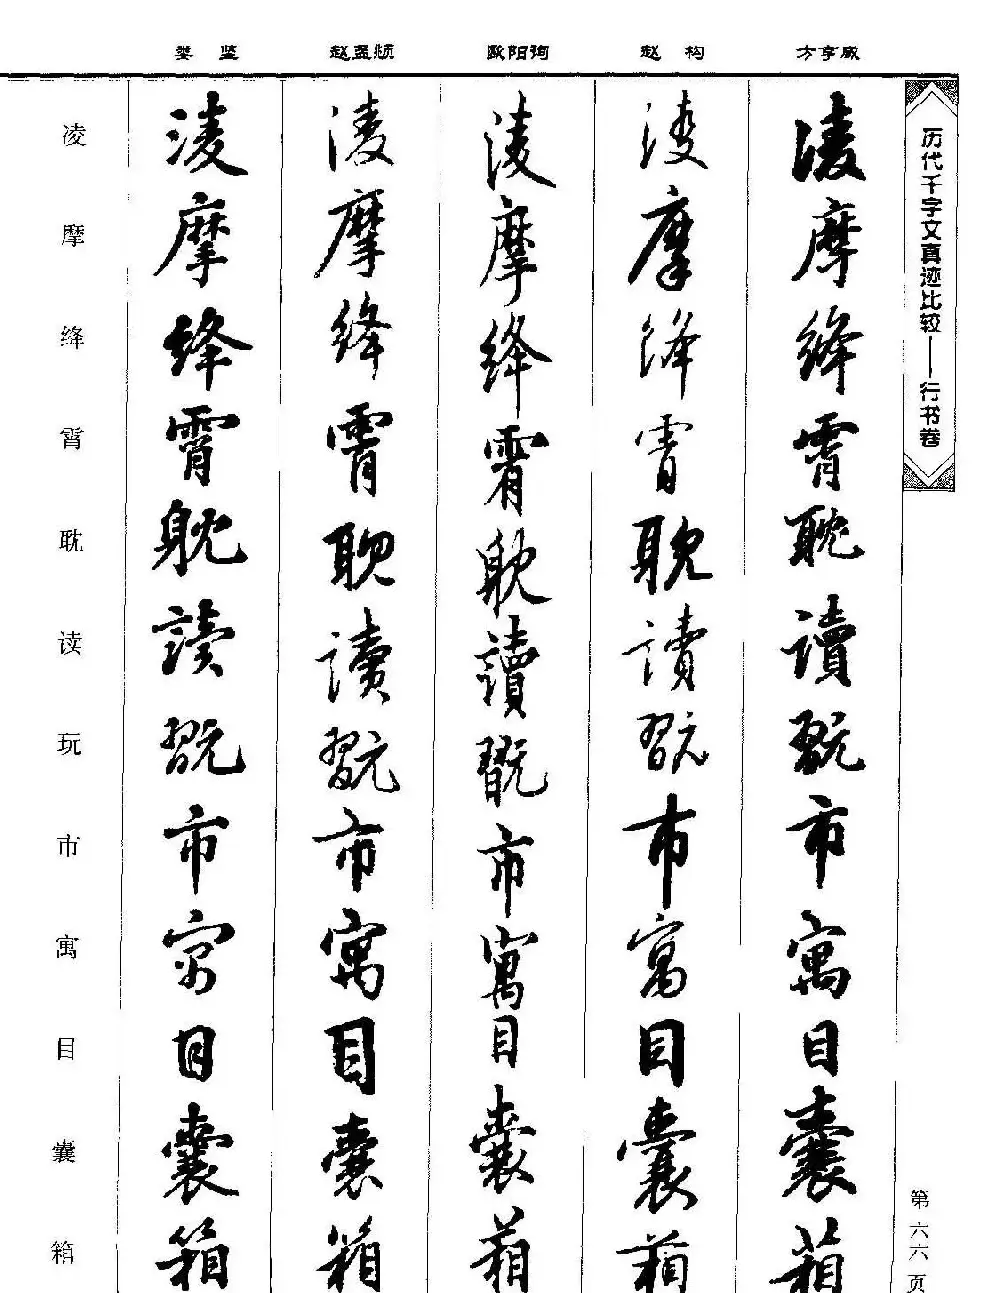 历代千字文真迹比较——行书卷
第六六页
方亨咸
淩摩絳霄耽讀翫市寓目囊箱
赵构
淩摩絳霄耽讀翫市寓目囊箱
欧阳询
淩摩絳霄躭讀翫市寓目囊箱
赵孟頫
淩摩絳霄耽讀翫市寓目囊箱
娄坚
淩摩絳霄躭讀翫市寓目囊箱
凌摩绛霄耽读玩市寓目囊箱